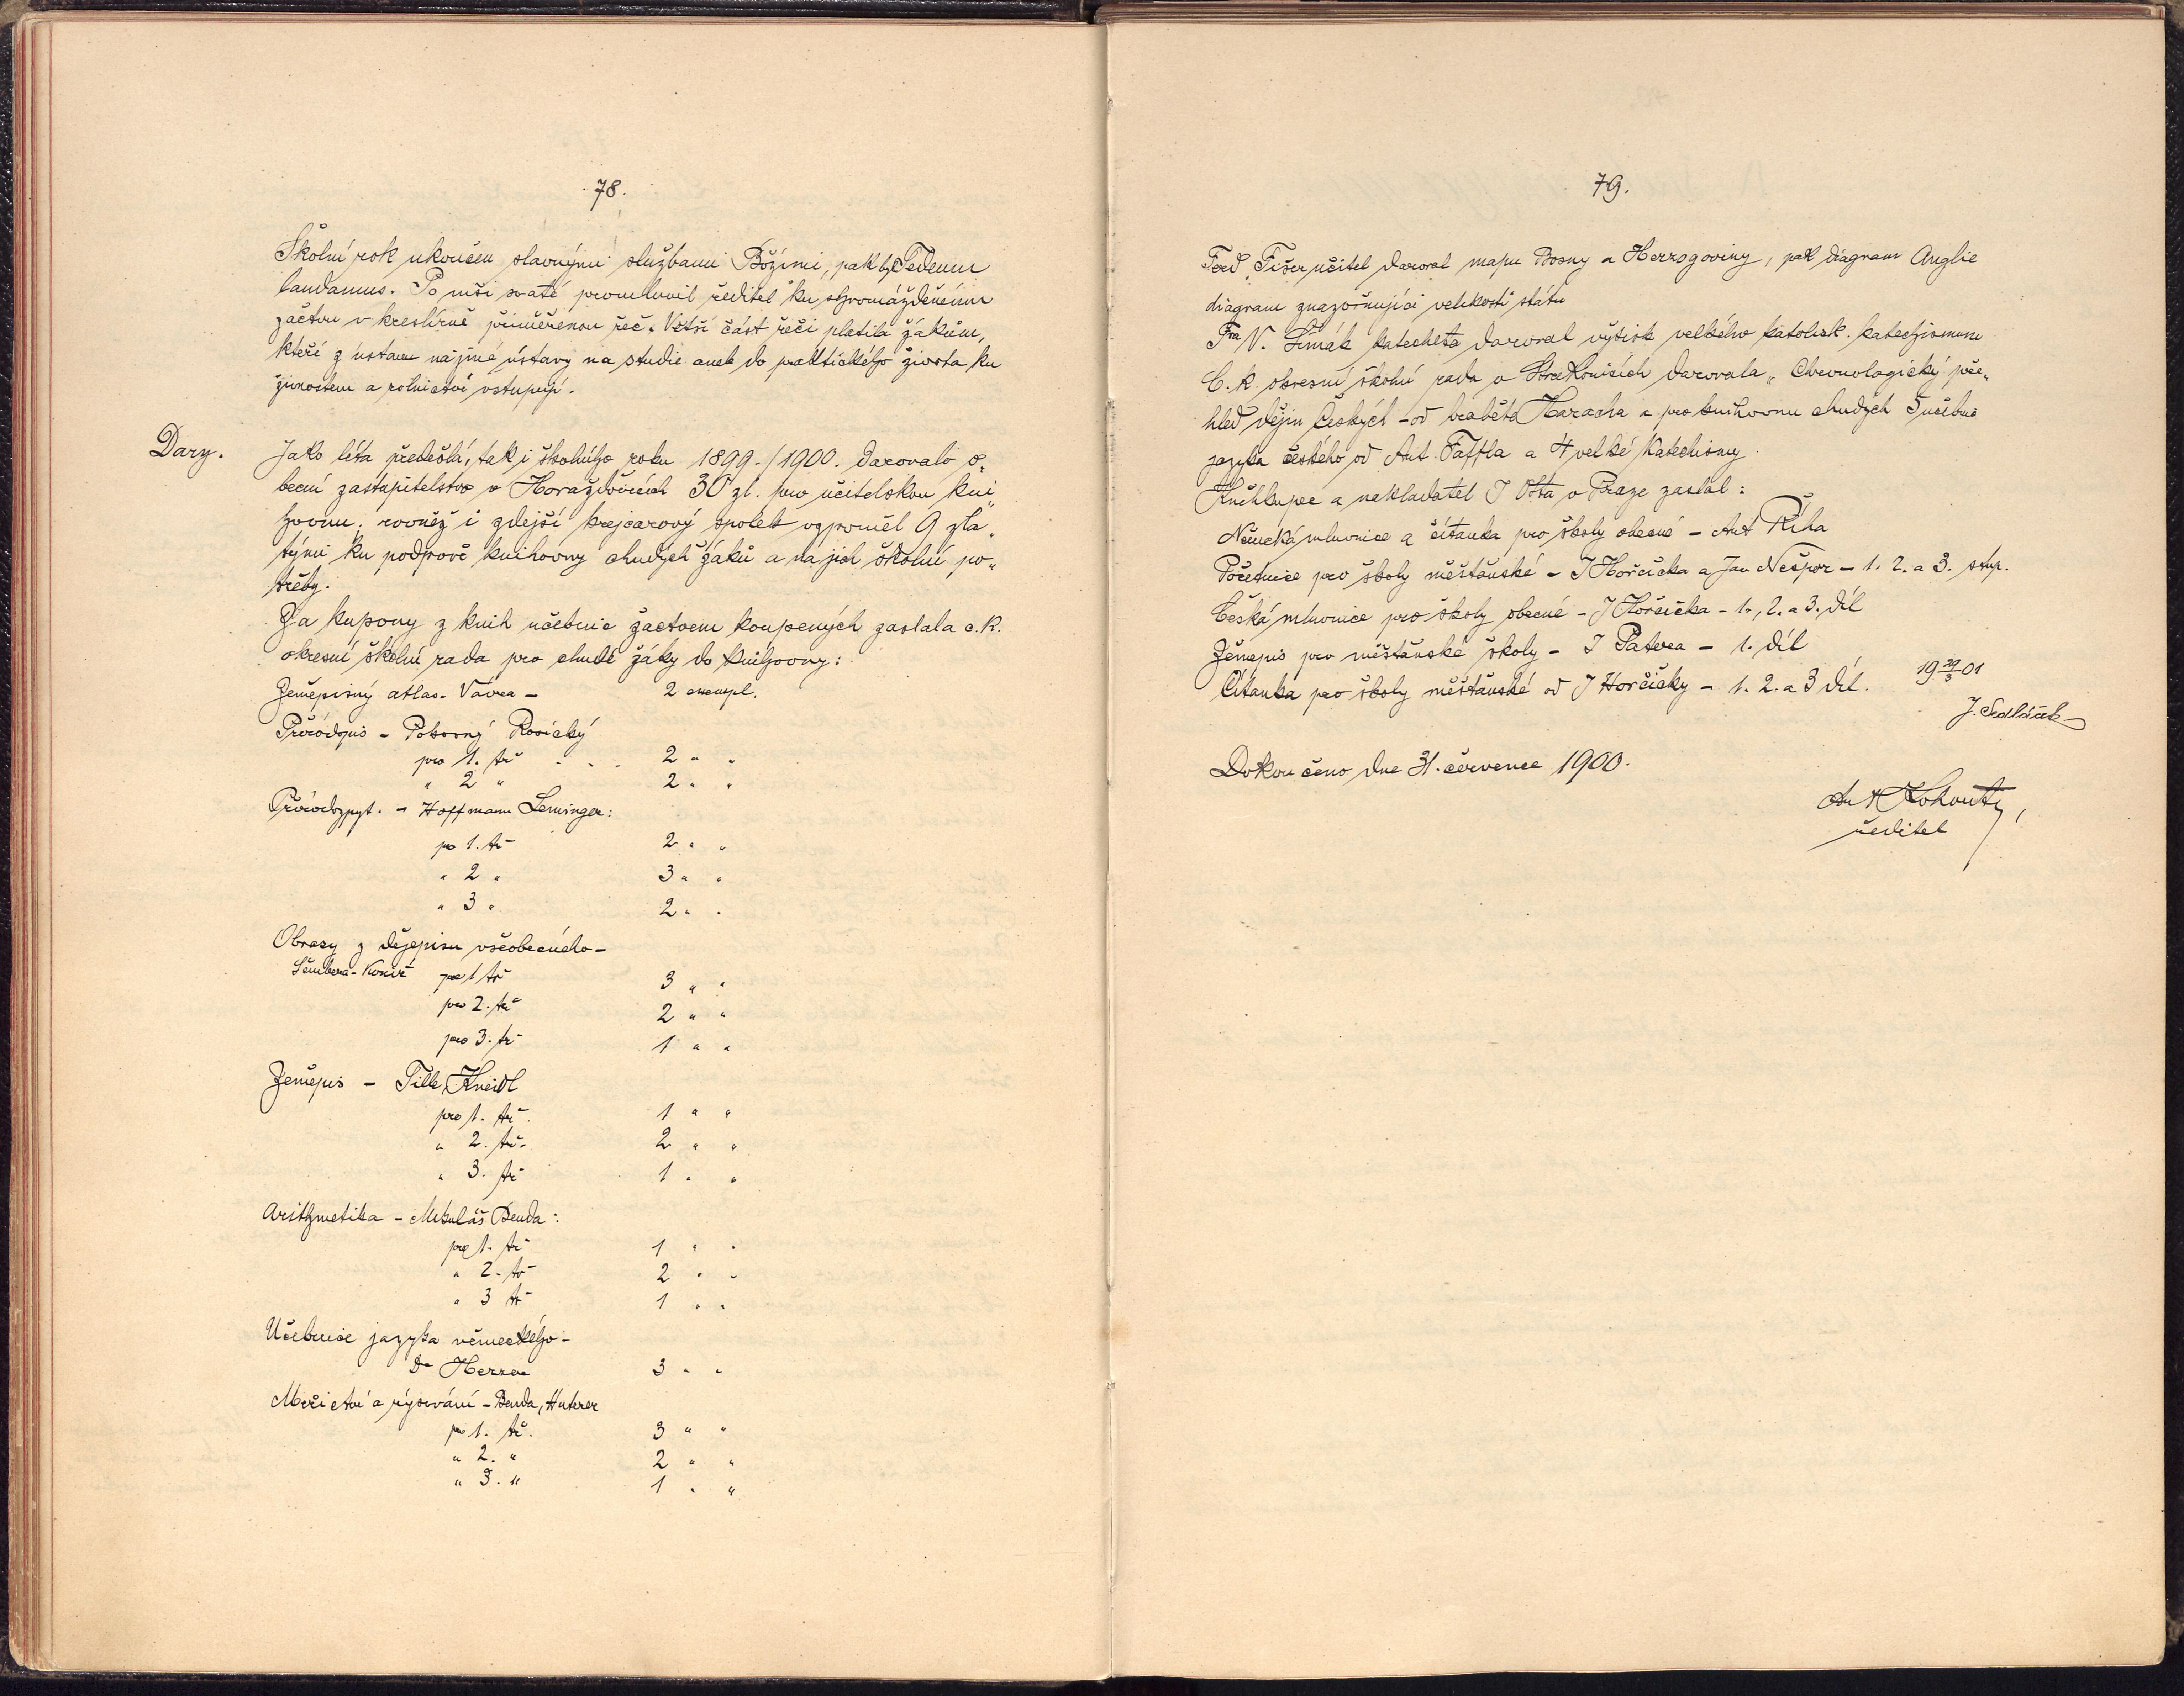 78.
Školní rok ukončen slavnými službami Božími, pak byl Tedeum
laudamus. Po mši svaté promluvil ředitel ku shromážděnému
žactvu v kreslírně přiměřenou řeč. Větší část řeči platila žákům,
kteří z ústavu na jiné ústavy na studie aneb do praktického života ku
živnostem a rolnictví vstupují.
Dary. Jako léta předešlá, tak i školního roku 1899-/1900. darovalo o„
becní zastupitelstvo v Horažďovicích 30 zl. pro učitelskou kni„
hovnu; rovněž i zdejší krejcarový spolek vzpoměl 9 zla„
tými ku podpoře knihovny chudých žáků a na jich školní po„
třeby.
Za kupony z knih učebnic žactvem koupených zaslala c. k.
okresní školní rada pro chudé žáky do knihovny:
Zeměpisný atlas. Vávra - 2 exempl.
Přírodopis - Pokorný Rosický
pro 1. tř . . . 2 " "
" 2 " 2 " "
Přírodozpyt. - Hoffmann Leminger:
po 1. tř 2 " "
" 2 " 3 " "
" 3 " 2 " "
Obrazy z dějepisu všeobecného -
Šembera - Koníř pro 1 tř 3 " "
pro 2. tř 2 " "
pro 3. tř 1 " "
Zeměpis - Tille, Kneidl
pro 1. tř. 1 " "
" 2. tř. 2 " "
" 3. tř 1 " "
Arithmetika - Mikuláš Benda:
pro 1. tř 1 " "
" 2. tř 2 " "
" 3 tř 1 " "
Učebnice jazyka německého -
Dr Herzer 3 " "
Měřictví a rýsování - Benda, Huterer
pro 1. tř. 3 " "
" 2. " 2 " "
" 3. " 1 " "
79.
Ferd. Fišer učitel daroval mapu Bosny a Herzogoviny, pak diagram Anglie
diagram znazorňující velikosti států
Fra V. Šimák katecheta daroval výtisk velkého katolick. katechismusu
C. k. okresní školní rada v Strakonicích darovala „Chronologický pře„
hled dějin Českých - od hraběte Haracha a pro knihovnu chudých 5 učebnic
jazyka českého od Ant. Taffla a 4 velké Katechismy.
Knihkupec a nakladatel J Otta v Praze zaslal:
Německá mluvnice a čítanka pro školy obecné - Ant Říha
Početnice pro školy měšťanské - J Horčička a Jan Nešpor - 1. 2. a 3. stup.
Česká mluvnice pro školy obecné - J Horčička - 1., 2. a 3. díl
Zěmepis pro měšťanské školy - J Patera - 1. díl
Čítanka pro školy měšťanské od J Horčičky - 1. 2. a 3 díl.
19 29/3 01
J. Sedláček
Dokončeno dne 31. července 1900.
Ant Kohout,
ředitel